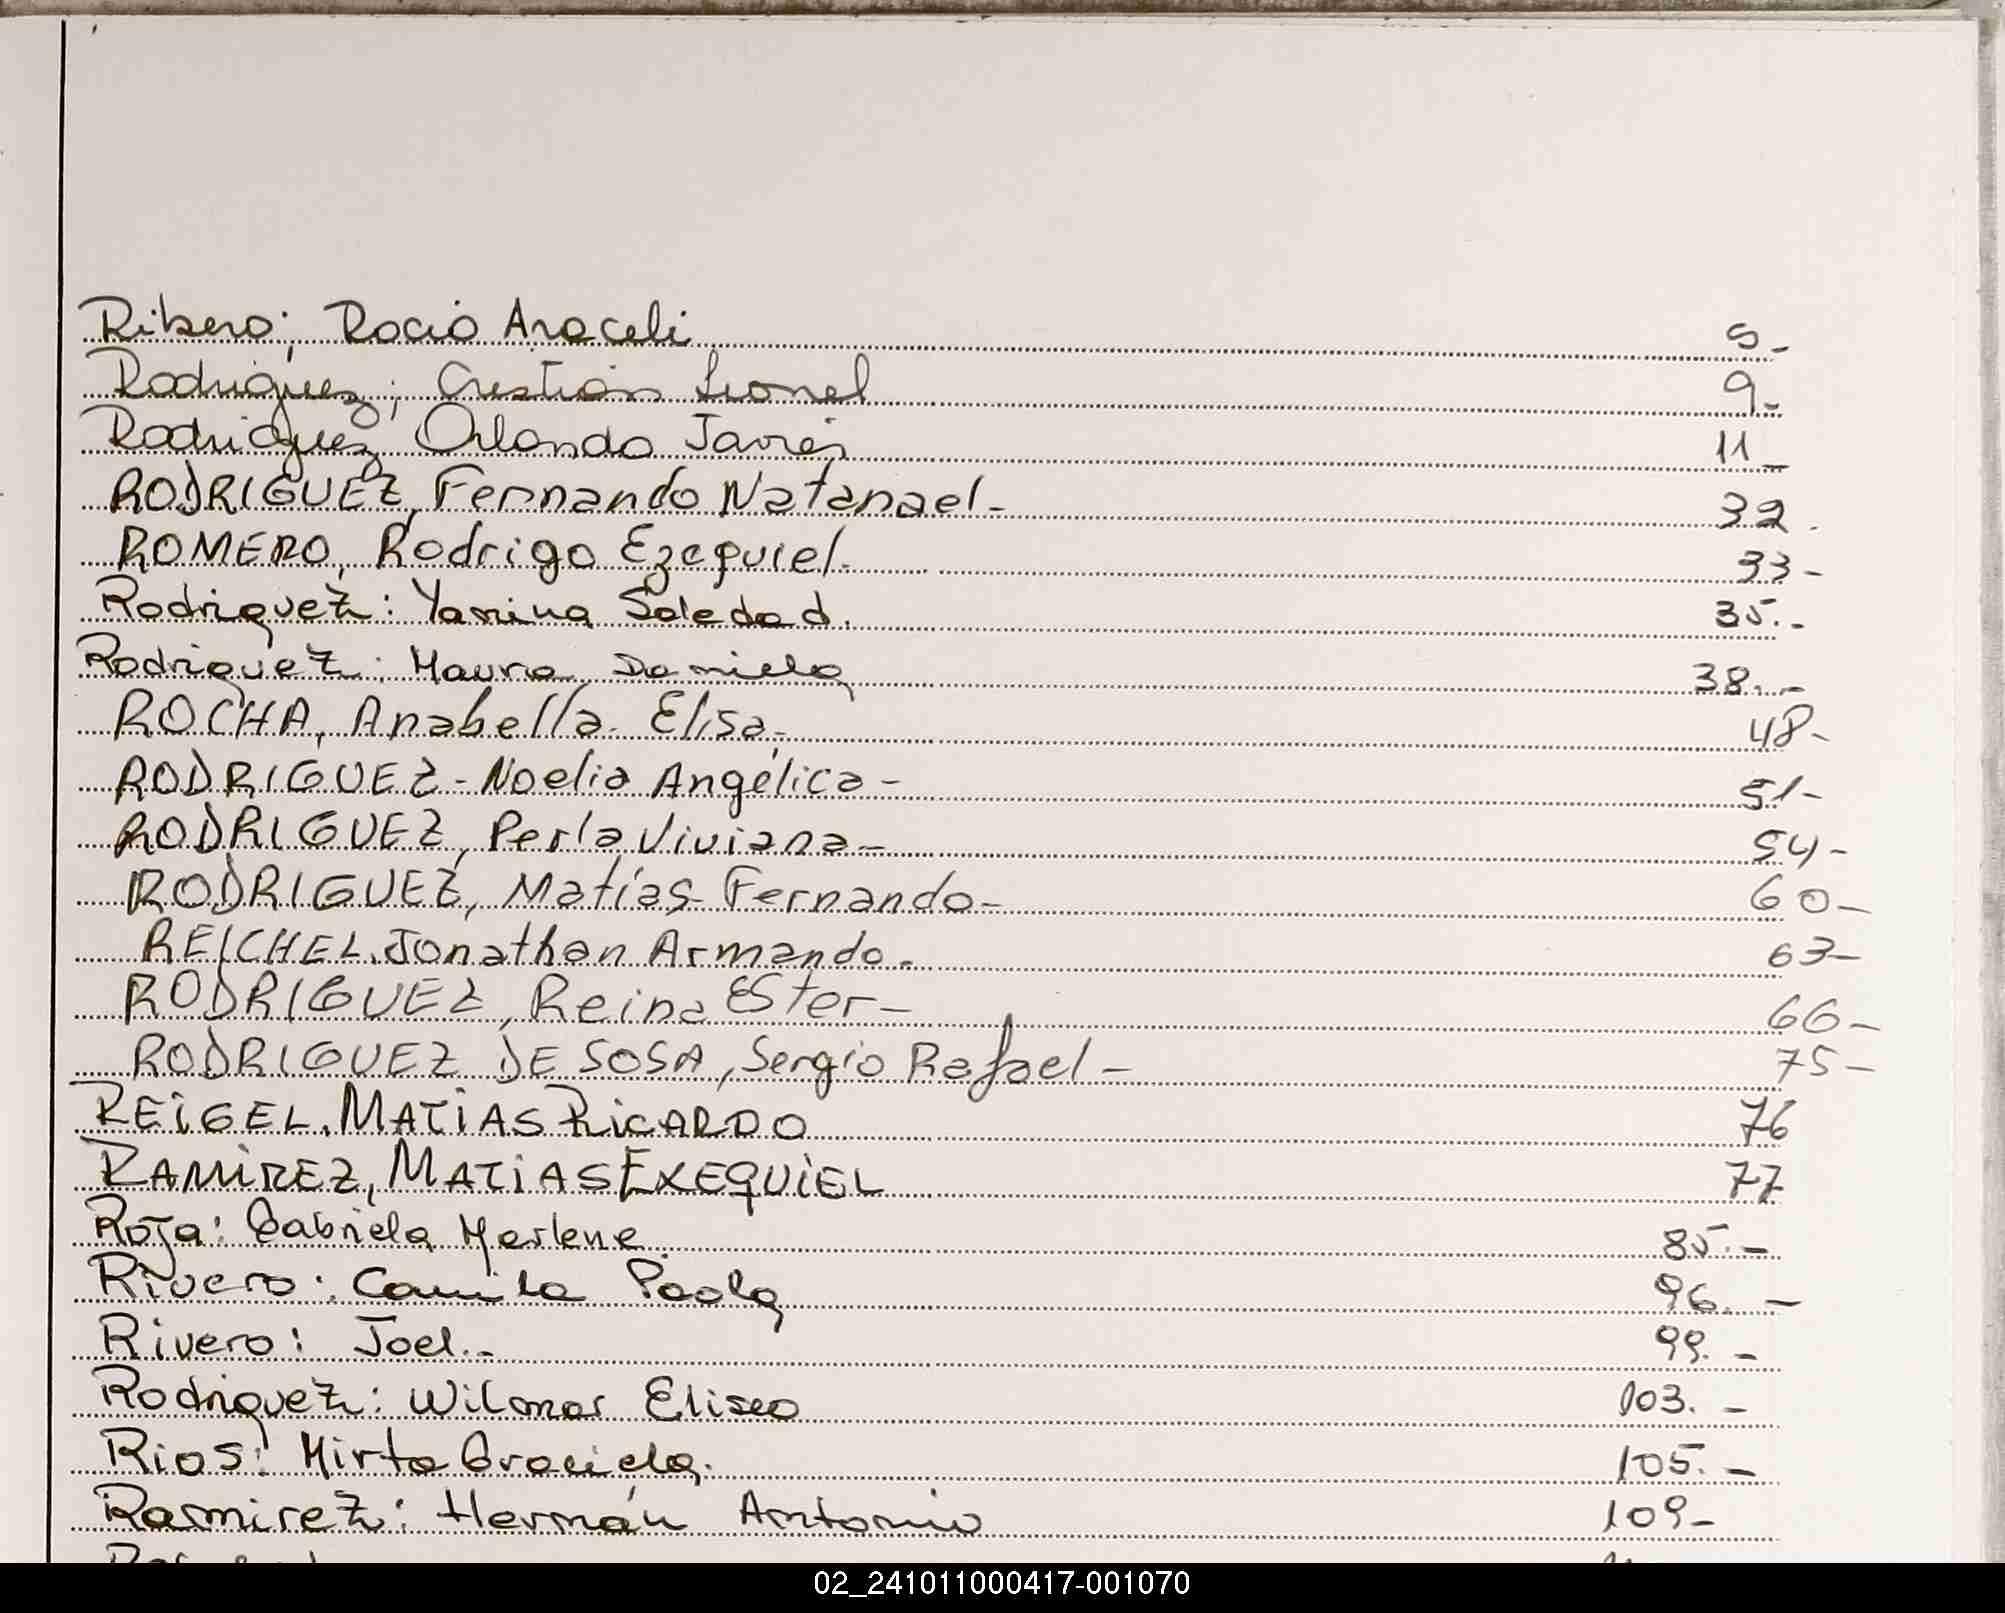 Ribero; Rocio Araceli 5-
Rodriguez; Cristian Lionel 9-
Rodriguez, Orlando Javier 11-
RODRIGUEZ, Fernando Natanael- 32.
ROMERO, Rodrigo Ezequiel. 33-
Rodriguez: Yanina Soledad. 35.-
Rodriguez: Maura Daniela 38.-
ROCHA, Anabella Elisa- 48-
RODRIGUEZ-Noelia Angélica- 51-
RODRIGUEZ, Perla Viviana- 54-
RODRIGUEZ, Matías Fernando- 60-
REICHEL, Jonathan Armando. 63-
RODRIGUEZ, Reina Ester- 66-
RODRIGUEZ DE SOSA, Sergio Rafael- 75-
REIGEL, MATIAS RICARDO 76
RAMIREZ, MATIAS EXEQUIEL 77
Roja: Gabriela Marlene 85.-
Rivero: Camila Paola 96.-
Rivero: Joel.- 99.-
Rodriguez: Wilmar Eliseo 103.-
Rios: Mirta Graciela. 105.-
Ramirez: Hernán Antonio 109-
02_241011000417-001070